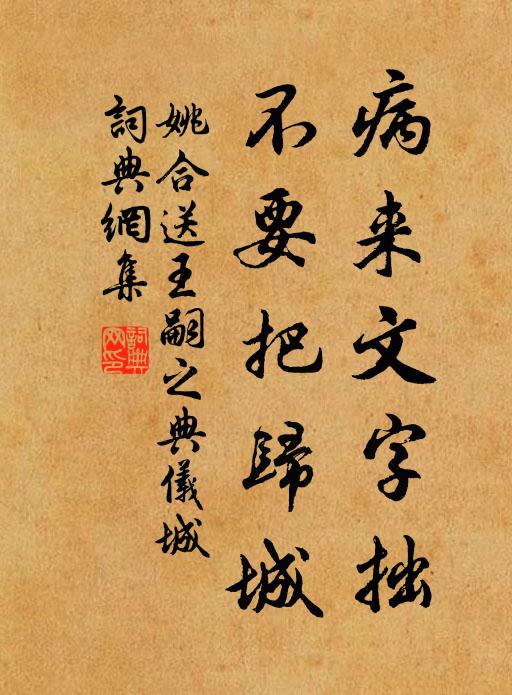 病来文字拙
不要把歸城
姚合送王嗣之典儀城
詞典網集
詞典
網印